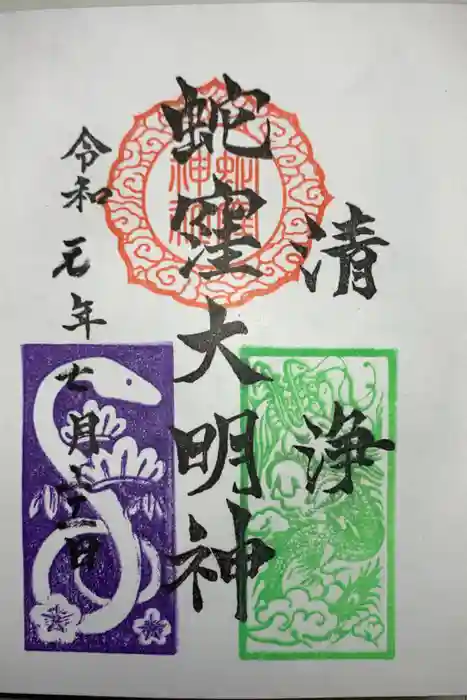 清浄
蛇窪大明神
令和元年七月日